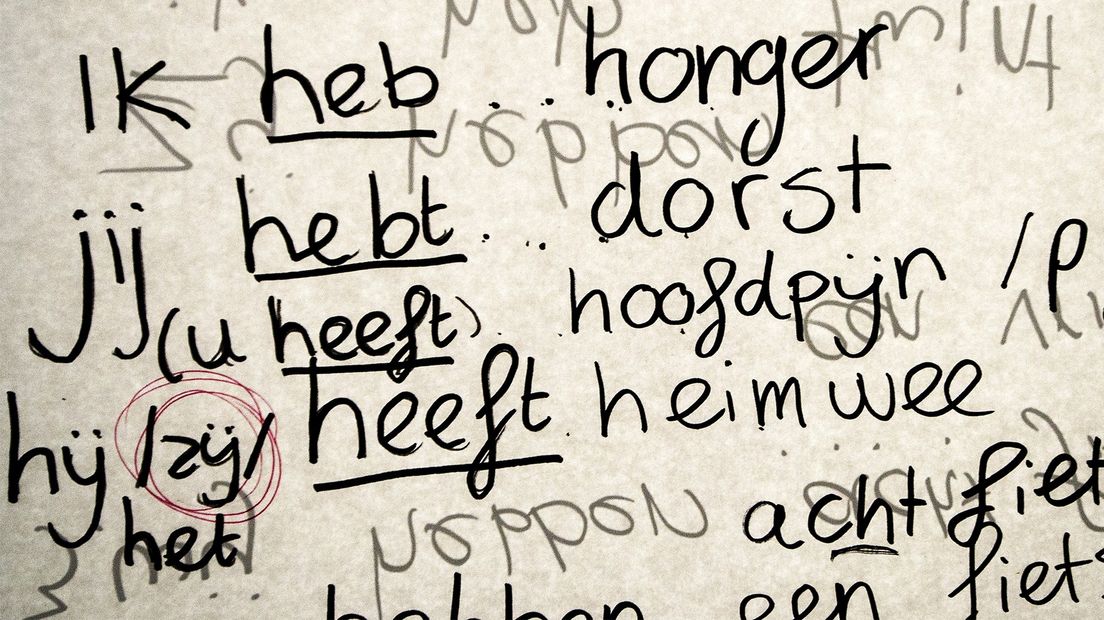 Ik heb ... honger
jij hebt ... dorst
(u heeft) .. hoofdpijn /p
hij /zij/ heeft heimwee
het acht fiets
hebben een fiets